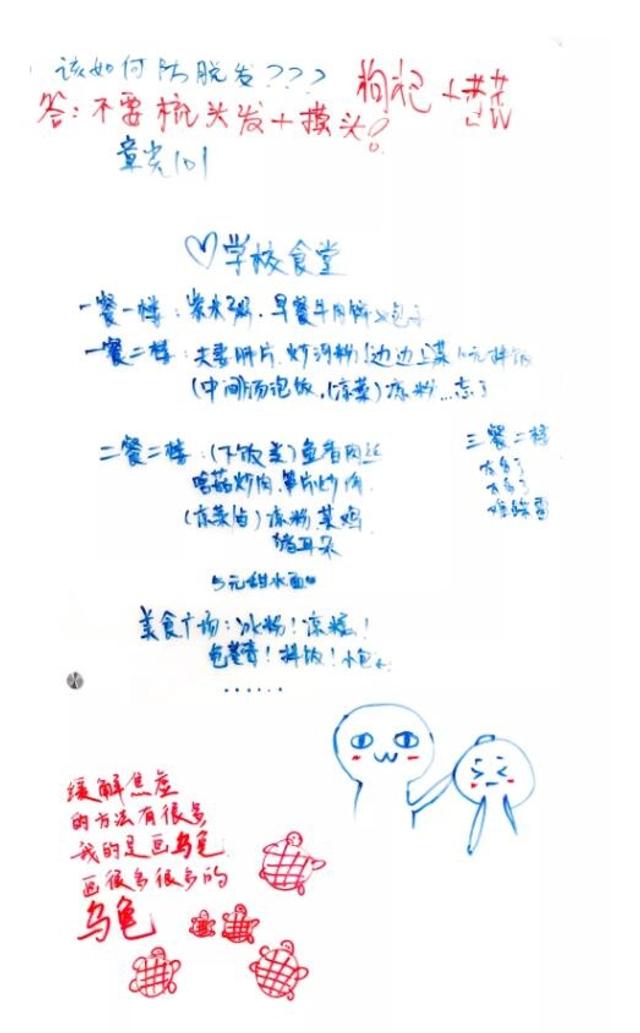 该如何防脱发???
枸杞+
答:不要梳头发+摸头!
♡学校食堂
一餐一楼:紫米粥.早餐牛肉饼 包子
一餐二楼:夫妻肺片.炒河粉!边边上菜 元拌饭
(中间)汤泡饭.(凉菜)凉粉...忘了
三餐二楼
太多了
太多了
二餐二楼:(下饭类)鱼香肉丝
蘑菇炒肉.笋片炒肉.
(凉菜 )凉粉.菜鸡
猪耳朵
5元甜水面
美食广场:冰粉!凉糕!
!拌饭!小
......
缓解焦虑
的方法有很多
我的是画乌龟
画很多很多的
乌龟